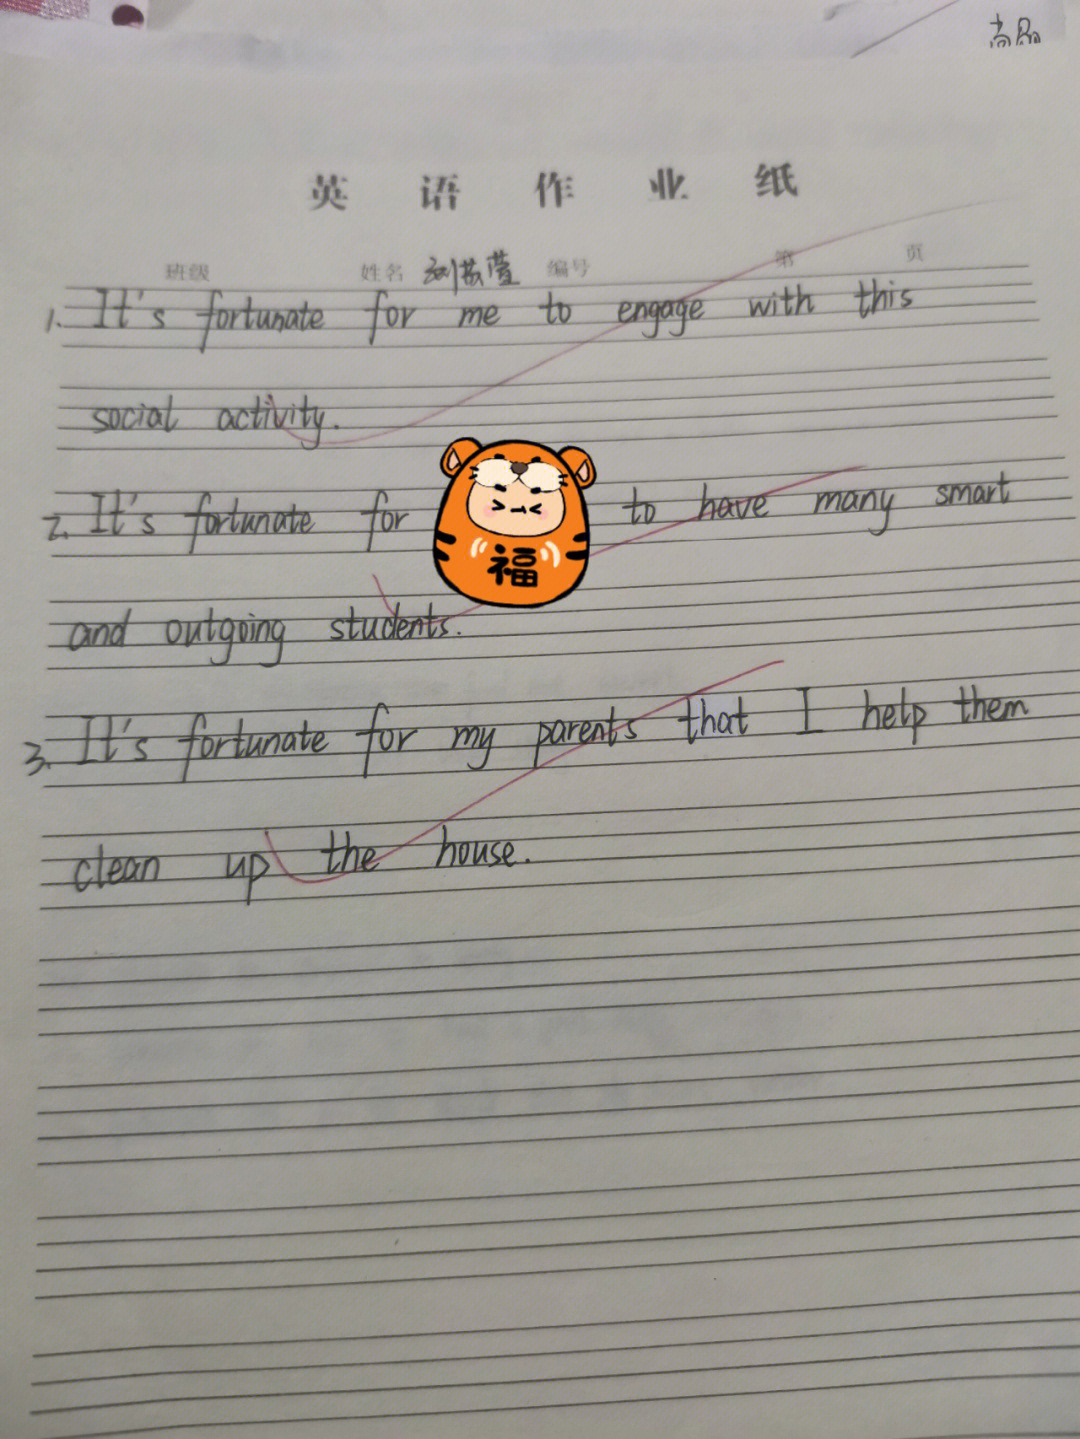 英语作业纸
班级 姓名 刘 编号 第 页
1. It's fortunate for me to engage with this
social activity.
2. It's fortunate for to have many smart
福
and outgoing students.
3. It's fortunate for my parents that I help them
clean up the house.